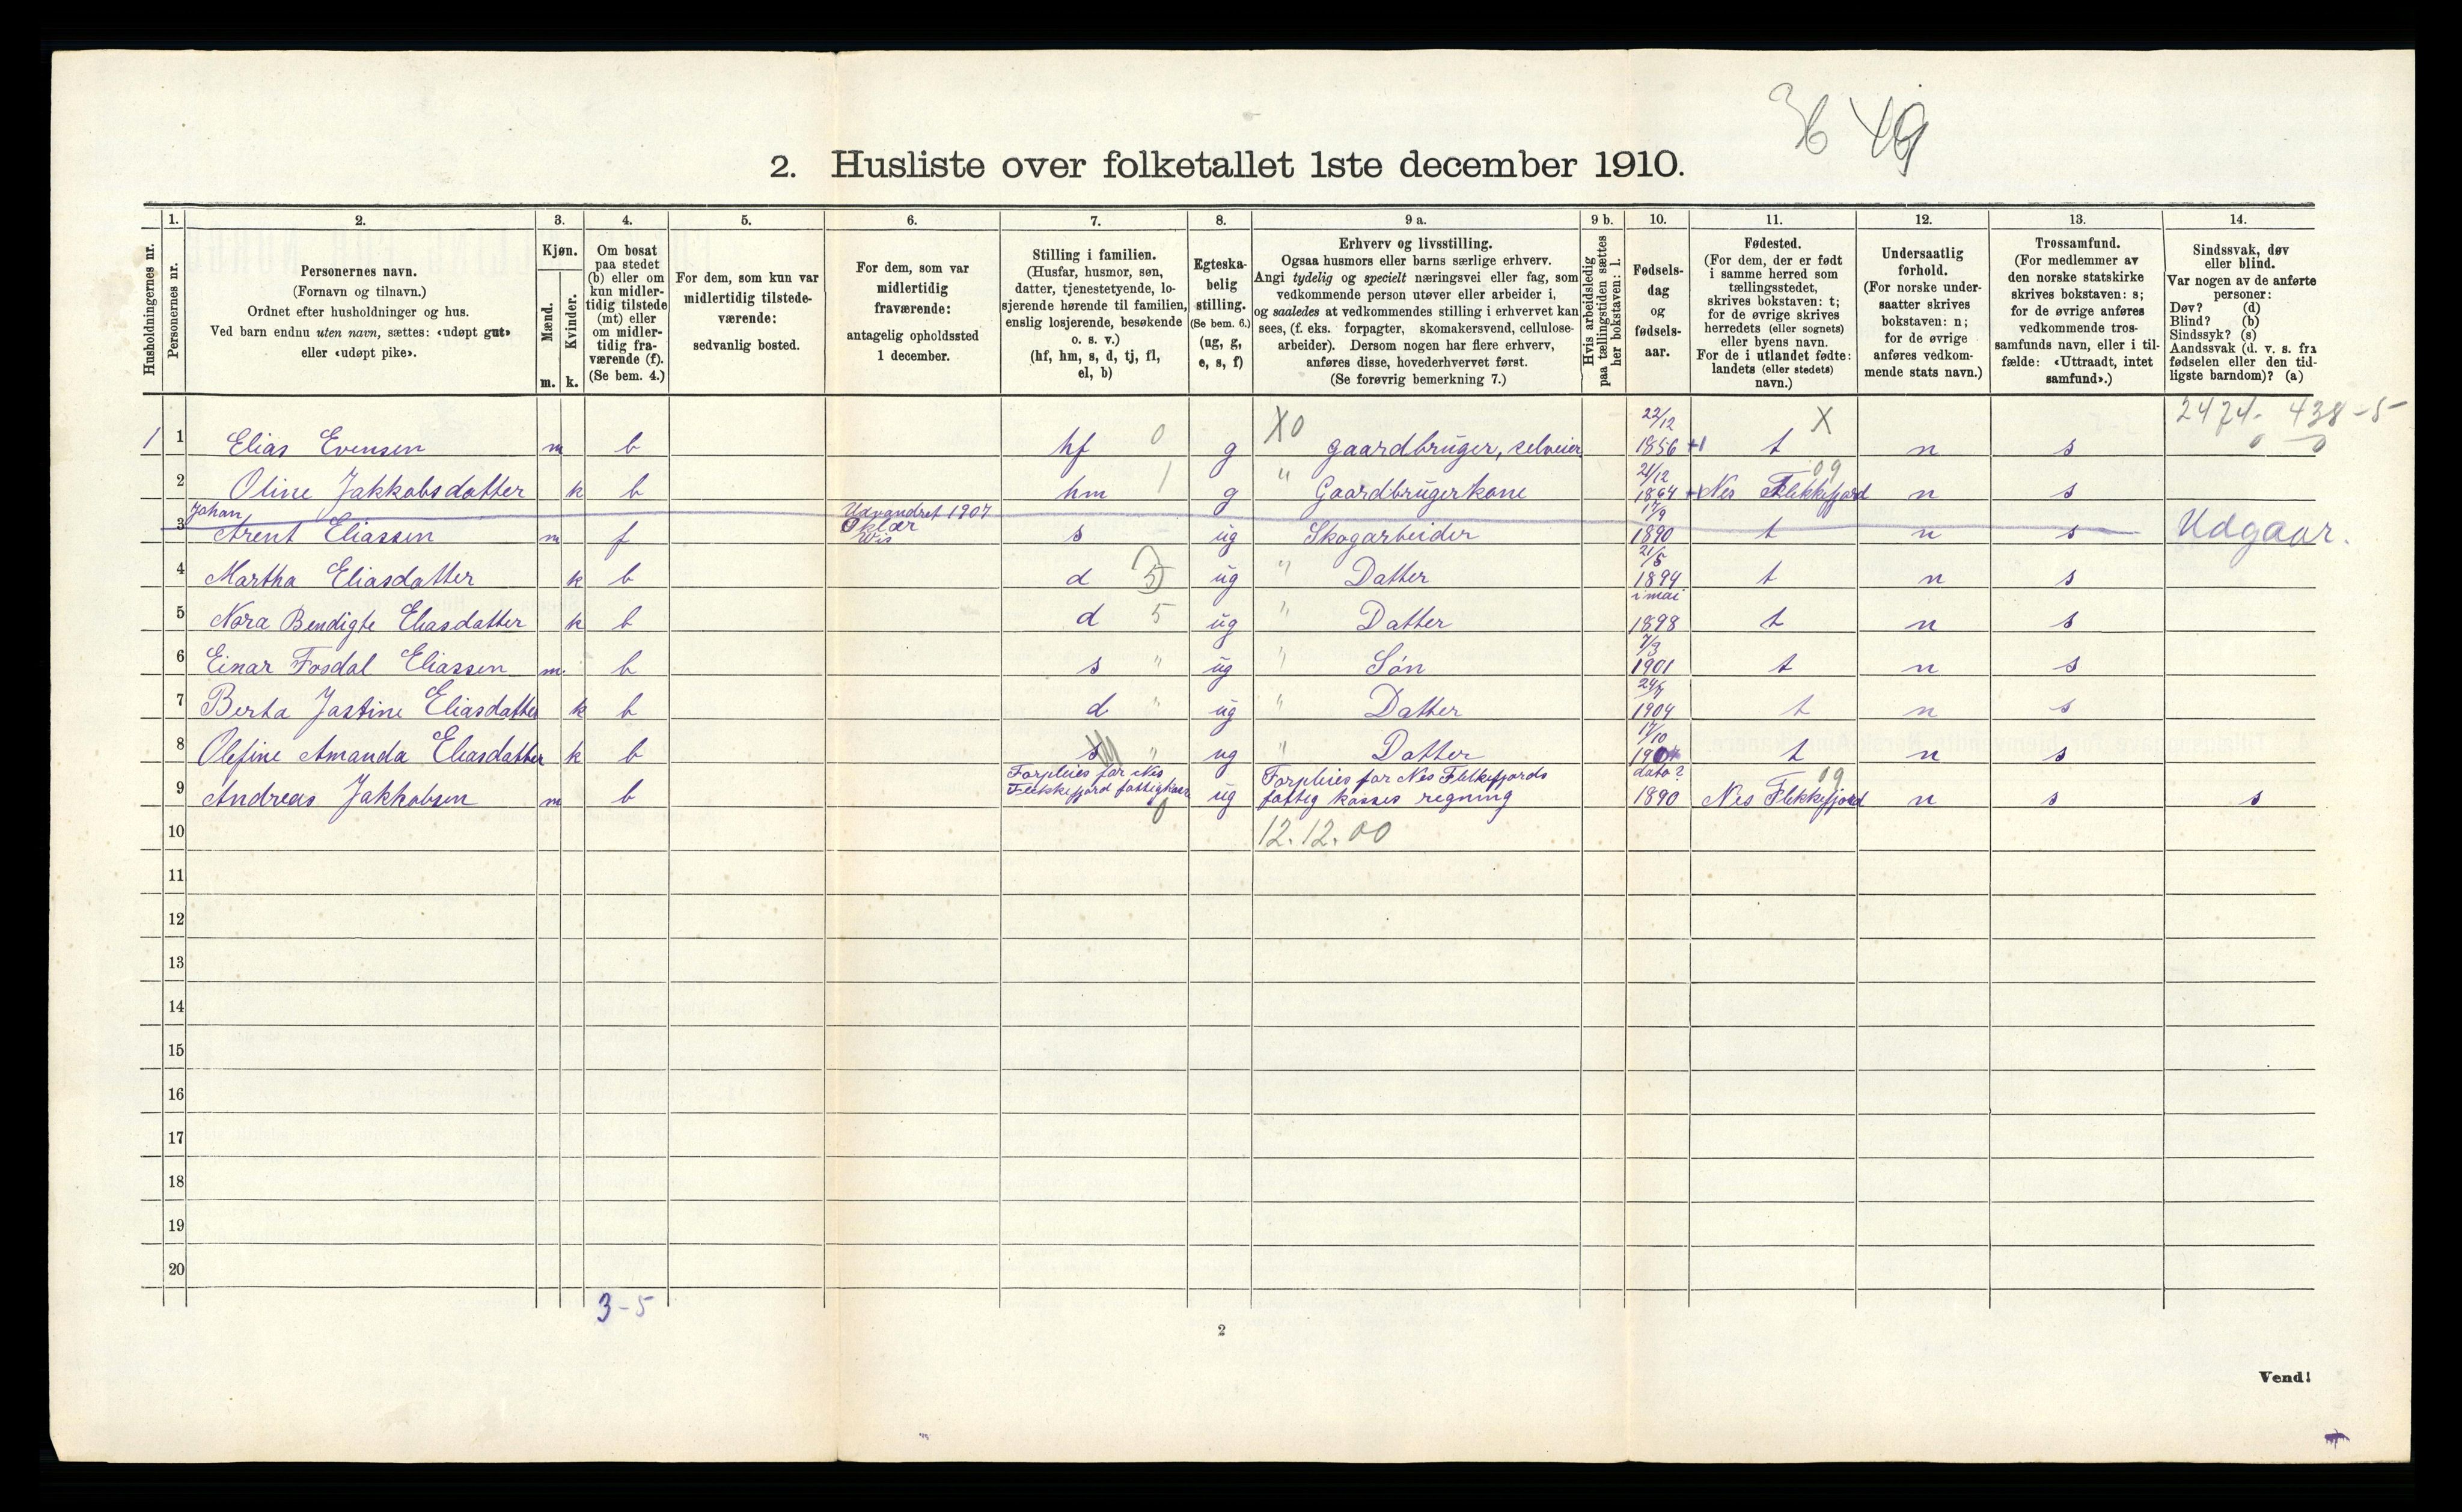 36 49
2. Husliste over folketallet 1ste december 1910.
Husholdningernes nr.
1.
Personernes nr.
2.
Personernes navn.
(Fornavn og tilnavn.)
Ordnet efter husholdninger og hus.
Ved barn endnu uten navn, sættes: «udøpt gut»
eller «udøpt pike».
3.
Kjøn.
Mænd.
Kvinder.
m. k.
4.
Om bosat
paa stedet
(b) eller om
kun midler-
tidig tilstede
(mt) eller
om midler-
tidig fra-
værende (f).
(Se bem. 4.)
5.
For dem, som kun var
midlertidig tilstede-
værende:
sedvanlig bosted.
6.
For dem, som var
midlertidig
fraværende:
antagelig opholdssted
1 december.
7.
Stilling i familien.
(Husfar, husmor, søn,
datter, tjenestetyende, lo-
sjerende hørende til familien,
enslig losjerende, besøkende
o. s. v.)
(hf, hm, s, d, tj, fl,
el, b)
8.
Egteska-
belig
stilling.
(Se bem. 6.)
(ug, g,
e, s, f)
9 a.
Erhverv og livsstilling.
Ogsaa husmors eller barns særlige erhverv.
Angi tydelig og specielt næringsvei eller fag, som
vedkommende person utøver eller arbeider i,
og saaledes at vedkommendes stilling i erhvervet kan
sees, (f. eks. forpagter, skomakersvend, cellulose-
arbeider). Dersom nogen har flere erhverv,
anføres disse, hovederhvervet først.
(Se forøvrig bemerkning 7.)
9 b.
Hvis arbeidsledig
paa tællingstiden sættes
her bokstaven: l.
10.
Fødsels-
dag
og
fødsels-
aar.
11.
Fødested.
(For dem, der er født
i samme herred som
tællingsstedet,
skrives bokstaven: t;
for de øvrige skrives
herredets (eller sognets)
eller byens navn.
For de i utlandet fødte:
landets (eller stedets)
navn.)
12.
Undersaatlig
forhold.
(For norske under-
saatter skrives
bokstaven: n;
for de øvrige
anføres vedkom-
mende stats navn.)
13.
Trossamfund.
(For medlemmer av
den norske statskirke
skrives bokstaven: s;
for de øvrige anføres
vedkommende tros-
samfunds navn, eller i til-
fælde: «Uttraadt, intet
samfund».)
14.
Sindssvak, døv
eller blind.
Var nogen av de anførte
personer:
Døv? (d)
Blind? (b)
Sindssyk? (s)
Aandssvak (d. v. s. fra
fødselen eller den tid-
ligste barndom)? (a)
2424- 438-5
0 0
22/12 X
1 1 Elias Evensen m b hf 0 g X0 gaardbruger, selveier 1856 +1 t n s
21/12 09
2 Oline Jakkobsdatter k b hm 1 g " Gaardbrugerkone 1864 + Nes Flekkefjord n s
Johan Udvandret 1907 17/9
3 Arent Eliassen m f Oklær Wis s ug Skogarbeider 1890 t n s Udgaar.
21/5
4 Martha Eliasdatter k b d 5 ug " Datter 1894 t n s
i mai
5 Nora Bendigte Eliasdatter k b d 5 ug " Datter 1898 t n s
7/3
6 Einar Fosdal Eliassen m. b s " ug " Søn 1901 t n s
24/7
7 Berta Jastine Eliasdatter k b d " ug " Datter 1904 t n s
17/10
8 Olefine Amanda Eliasdatter k b s " ug " Datter t n s
Forpleies for Nes Forpleies for Nes Flekkefjords dato? 09
9 Andreas Jakkobsen m b Flekkefjord fattigkasse 0 ug fattig kasses regning 1890 Nes Flekkefjord n s s
10 12.12.00
11
12
13
14
15
16
17
18
19
20
3-5
2
Vend!